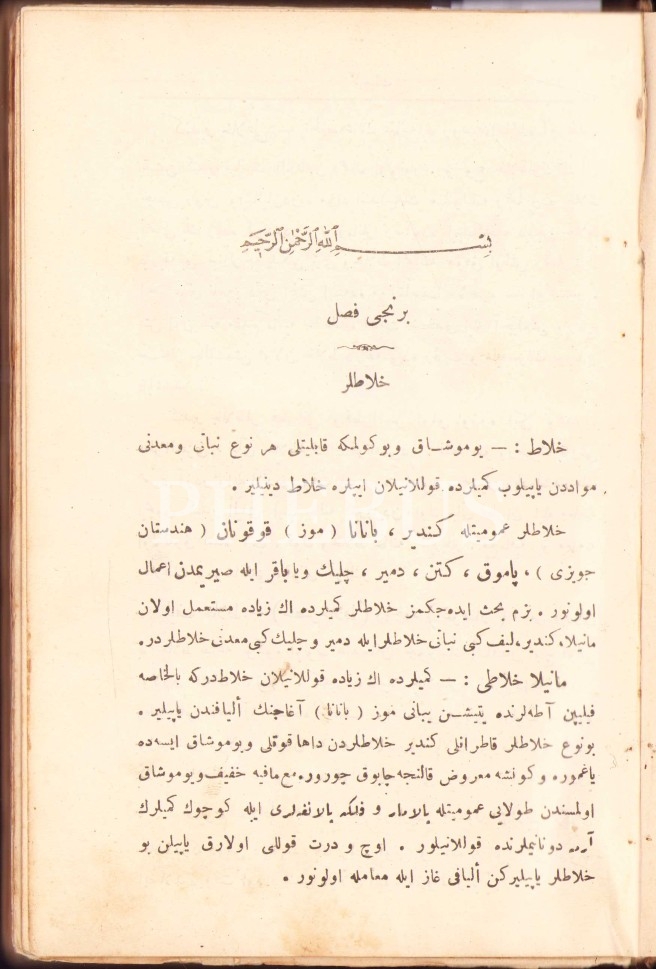 بسم الله الرحمن الرحيم
برنجی فصل
خلاطلر
خلاط : — یوموشاق وبوكولمكه قابلیتلی هر نوع نباتی ومعدنی
مواددن یاپیلوب كمیلرده قوللانیلان ایپلره خلاط دینیلیر .
خلاطلر عمومیتله كندیر ، بانانا ( موز ) قوقوناق ( هندستان
جویزی ) ، پاموق ، كتن ، دمیر ، چلیك ویا باقر ایله صیریمدن اعمال
اولونور . بزم بحث ایده جكمز خلاطلر كمیلرده اك زیاده مستعمل اولان
مانیلا ، كندیر ، لیف كبی نباتی خلاطلرایله دمیر و چلیك كبی معدنی خلاطلردر.
مانیلا خلاطی : — كمیلرده اك زیاده قوللانیلان خلاطدركه بالخاصه
فیلیپن آطه لرنده یتیشن یبانی موز ( بانانا ) آغاجنك ألیافندن یاپیلیر .
بونوع خلاطلر قاطرانلی كندیر خلاطلردن داها قوتلی ویوموشاق ایسه ده
یاغموره وكونشه معروض قالنجه چابوق چورور. مع مافیه خفیف ویوموشاق
اولمسندن طولایی عمومیتله پالامار و فلكه پالانغه لری ایله كوچوك كمیلرك
دونانیملرنده قوللانیلور . اوچ و درت قوللی اولارق یاپیلن بو
خلاطلر یاپیلیركن ألیافی غاز ایله معامله اولونور .
PHEBUS